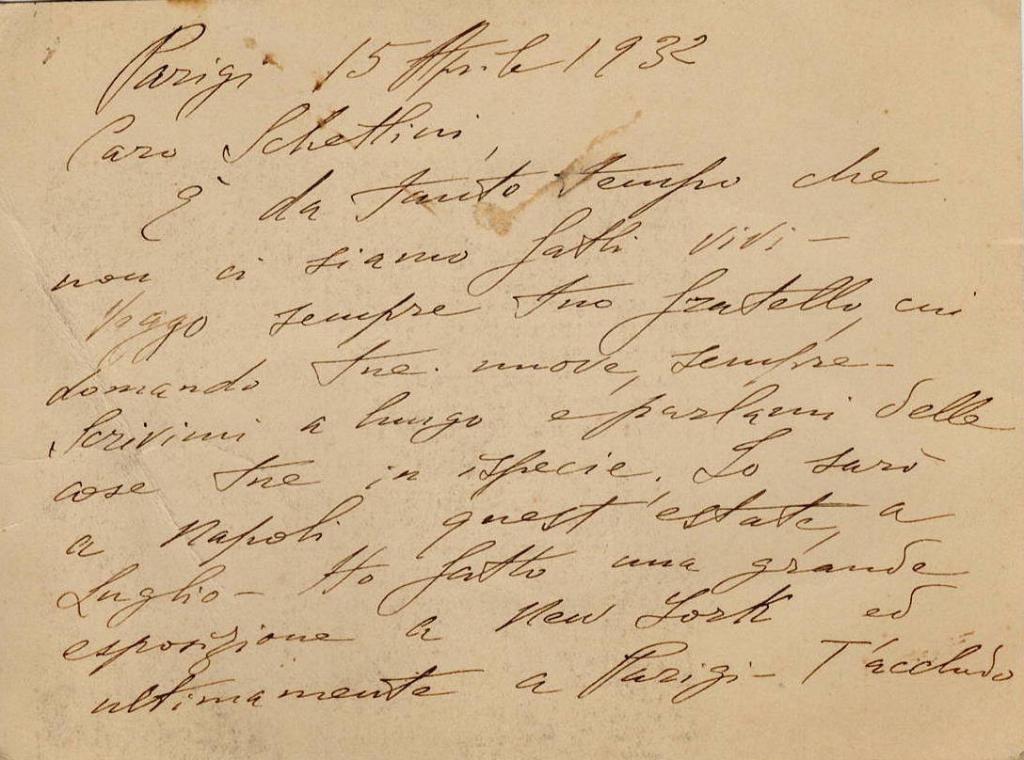 Parigi 15 Aprile 1932
Caro Schettini,
È da tanto tempo che
non ci siamo fatti vivi -
Veggo sempre tuo fratello, cui
domando tue nuove, sempre -
Scrivimi a lungo e parlami delle
cose tue in ispecie. Io sarò
a Napoli quest'estate, a
Luglio - Ho fatto una grande
esposizione a New York ed
ultimamente a Parigi - T'accludo